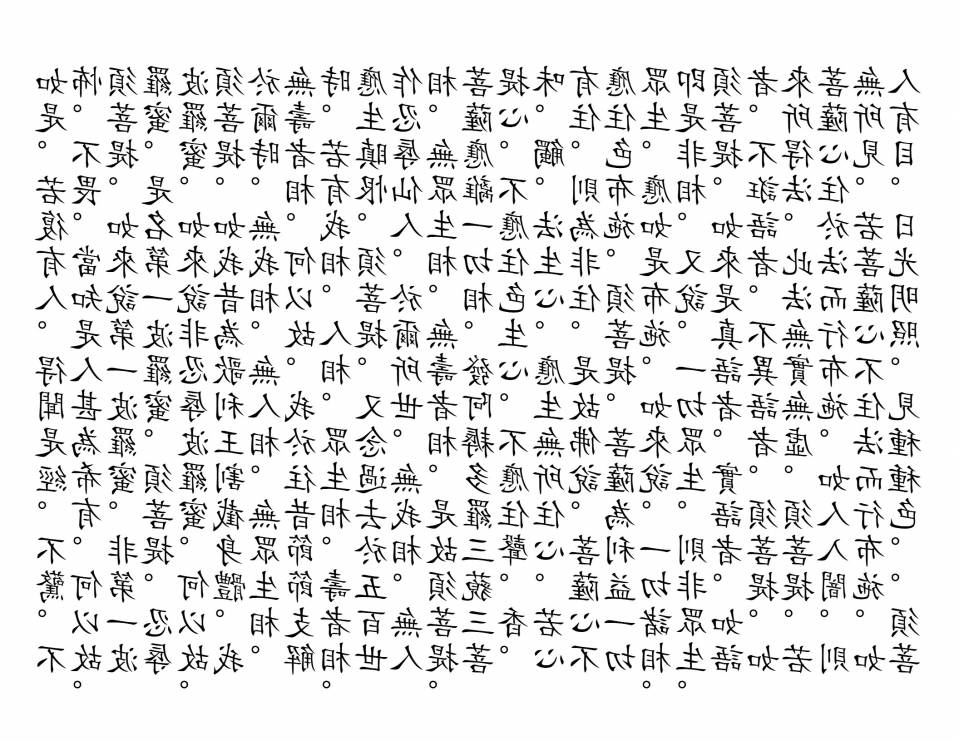 如是。若復有人。得聞是經。不驚。不
怖。不畏。當知是人甚為希有。何以故。
須菩提。如來說第一波羅蜜。非第一波
羅蜜。是名第一波羅蜜。須菩提。忍辱
波羅蜜。如來說非忍辱波羅蜜。何以故。
須菩提。如我昔為歌利王割截身體。我
於爾時。無我相。無人相。無眾生相。
無壽者相。何以故。我於往昔節節支解
時。若有我相。人相。眾生相。壽者相。
應生瞋恨。須菩提。又念過去於五百世
作忍辱仙人。於爾所世。無我相。無人
相。無眾生相。無壽者相。是故須菩提。
菩薩應離一切相。發阿耨多羅三藐三菩
提心。不應住色生心。不應住聲。香。
味。觸。法生心。應生無所住心。若心
有住。則為非住。是故佛說。菩薩心不
應住色布施。須菩提。菩薩為利益一切
眾生。應如是布施。如來說。一切諸相。
即是非相。又說一切眾生。則非眾生。
須菩提。如來是真語者。實語者。如語
者。不誑語者。不異語者。須菩提。如
來所得法。此法無實無虛。須菩提。若
菩薩心住於法而行布施。如人入闇。則
無所見。若菩薩心不住法而行布施。如
人有目。日光明照。見種種色。須菩